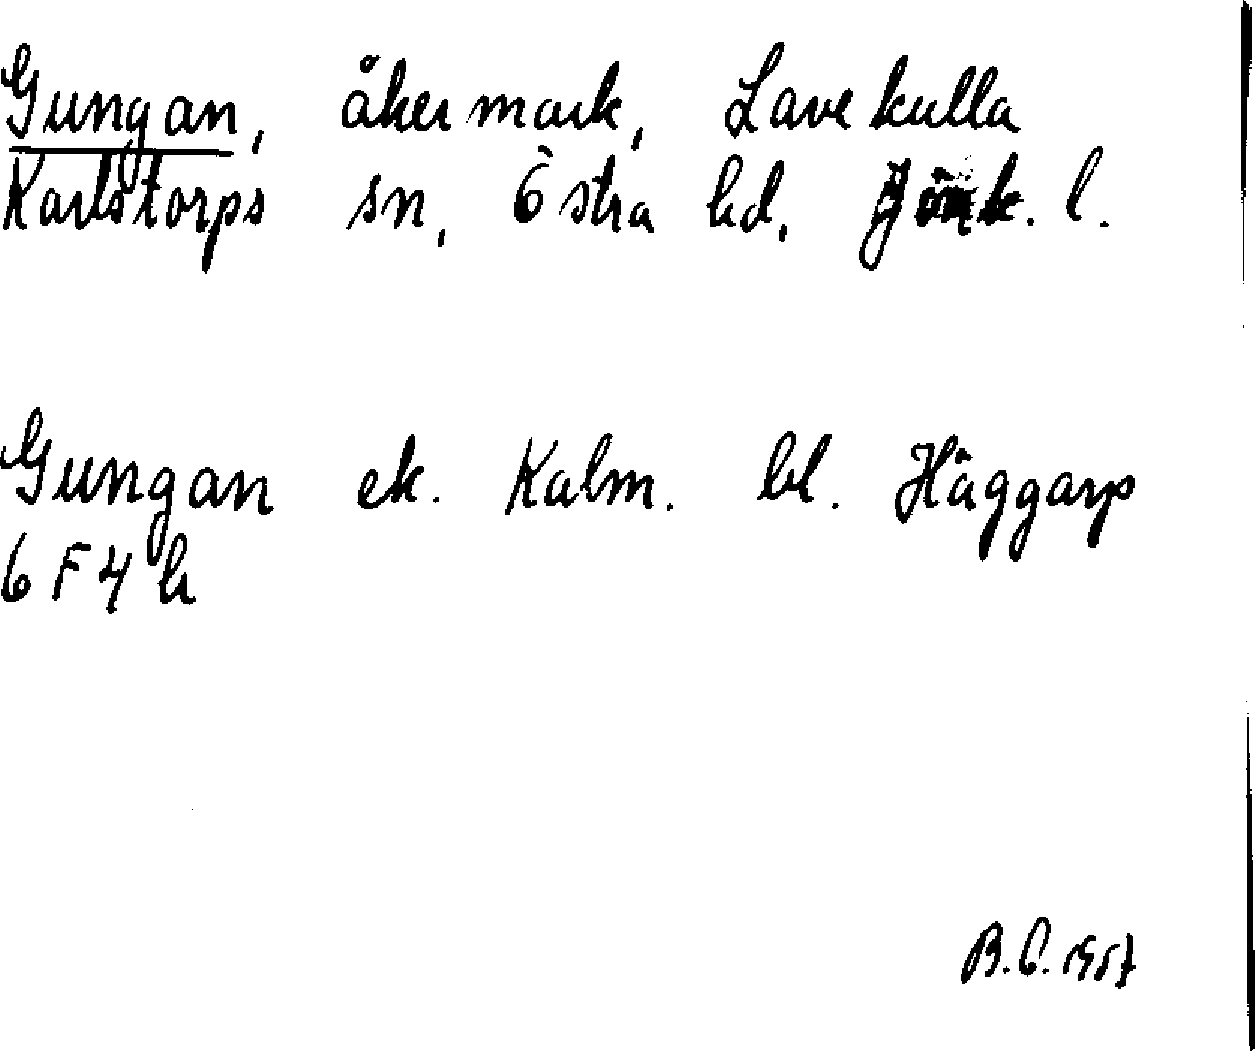 Gungan, åkermark, Lavekulla
Karlstorps sn, Östra hd, Jönk. l.
Gungan ek. Kalm. bl. Häggarp
6 F 4 h
B.E. 1957